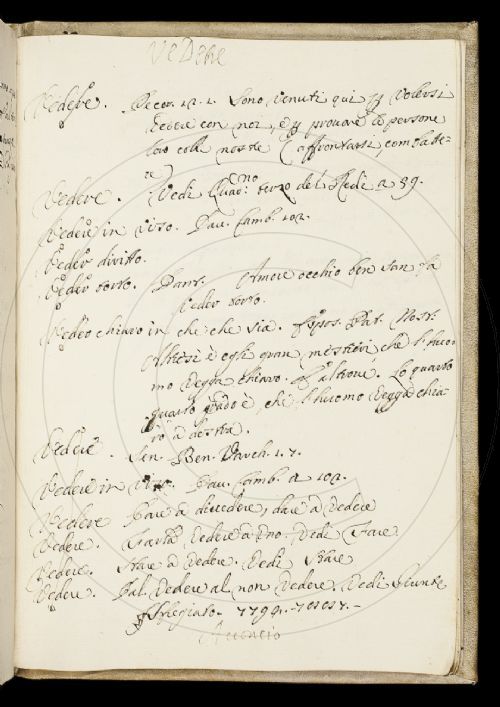 Vedere
Vedere. Decor. 12. 1. Sono venuti qui p volersi
vedere con noi, e p provare le persone
loro colle nostre (affrontarsi, combatte-
re)
Vedere. Vedi Quadno terzo del Redi a 59.
Vedere in viso. Dav. Camb. 102.
Veder diritto.
Veder torto. Dant. Amore occhio ben san fa
veder torto.
Vedeo chiaro in che che sia. Espos. Pat. Nost.
Altresì è egli gran mestieri che l'huo-
mo vegga chiaro. altrove. Lo quarto
guardo è, che l'huomo vegga chia-
ro a destra.
Vedere. Sen. Ben. Varch. 1. 7.
Vedere in viso. Dav. Camb. a 102.
Vedere Dare a divedere, dare a vedere
Vedere. Farla vedere a uno. Vedi Fare
Vedere. Stare a vedere. Vedi Stare
Vedere. Dal vedere al non vedere. Vedi